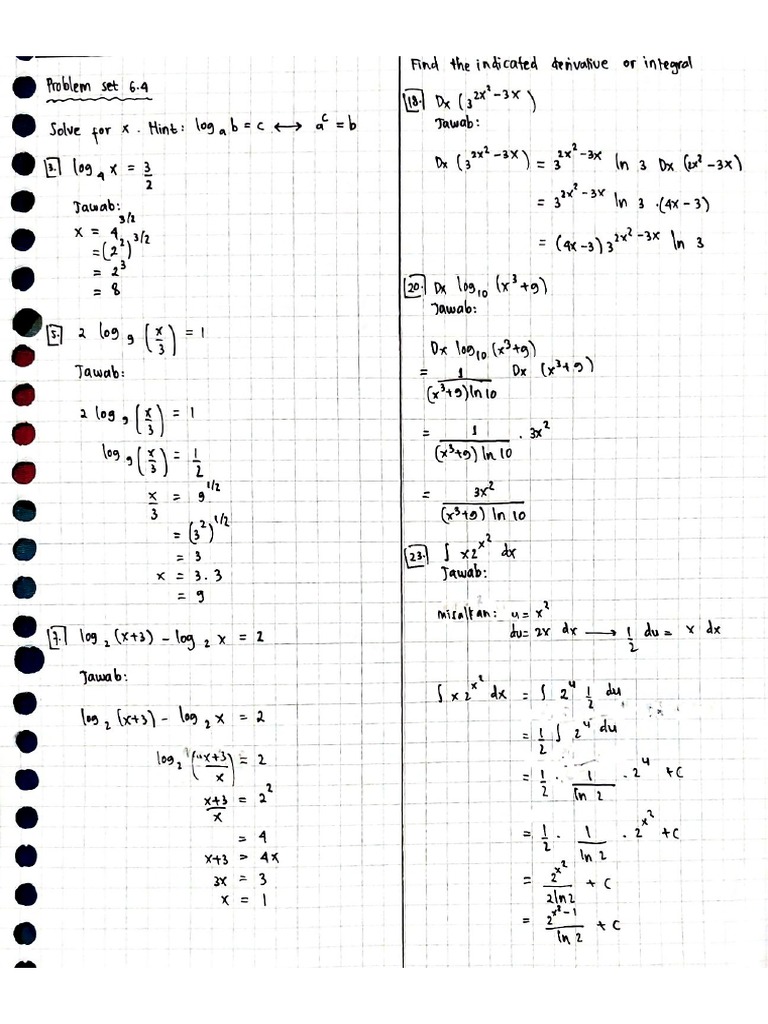 Problem set 6.4
Solve for x. Hint: log_a b = c ⟷ a^c = b
3. log_4 x = 3/2
Jawab:
x = 4^(3/2)
= (2^2)^(3/2)
= 2^3
= 8
5. 2 log_9 (x/3) = 1
Jawab:
2 log_9 (x/3) = 1
log_9 (x/3) = 1/2
x/3 = 9^(1/2)
= (3^2)^(1/2)
= 3
x = 3.3
= 9
7. log_2 (x+3) - log_2 x = 2
Jawab:
log_2 (x+3) - log_2 x = 2
log_2 ((x+3)/x) = 2
(x+3)/x = 2^2
= 4
x+3 = 4x
3x = 3
x = 1
Find the indicated derivative or integral
18. Dx (3^(2x^2-3x))
Jawab:
Dx (3^(2x^2-3x)) = 3^(2x^2-3x) ln 3 Dx (2x^2-3x)
= 3^(2x^2-3x) ln 3 · (4x-3)
= (4x-3) 3^(2x^2-3x) ln 3
20. Dx log_10 (x^3+9)
Jawab:
Dx log_10 (x^3+9)
= 1/((x^3+9) ln 10) Dx (x^3+9)
= 1/((x^3+9) ln 10) · 3x^2
= 3x^2/((x^3+9) ln 10)
23. ∫ x2^(x^2) dx
Jawab:
misalkan: u = x^2
du = 2x dx ⟶ 1/2 du = x dx
∫ x2^(x^2) dx = ∫ 2^u 1/2 du
= 1/2 ∫ 2^u du
= 1/2 · 1/(ln 2) · 2^u + C
= 1/2 · 1/(ln 2) · 2^(x^2) + C
= 2^(x^2)/(2 ln 2) + C
= 2^(x^2-1)/(ln 2) + C